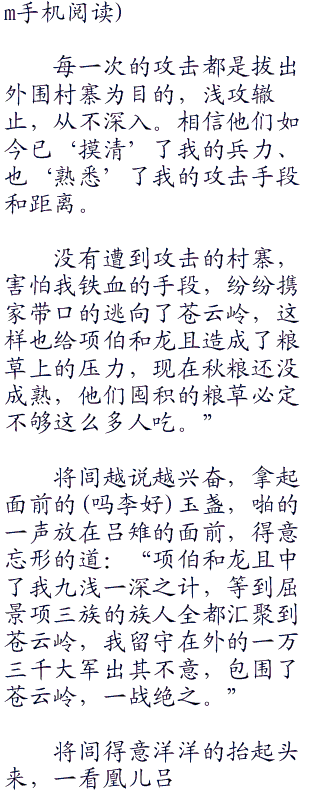 m手机阅读)
每一次的攻击都是拔出
外围村寨为目的，浅攻辙
止，从不深入。相信他们如
今已‘摸清’了我的兵力、
也‘熟悉’了我的攻击手段
和距离。
没有遭到攻击的村寨，
害怕我铁血的手段，纷纷携
家带口的逃向了苍云岭，这
样也给项伯和龙且造成了粮
草上的压力，现在秋粮还没
成熟，他们囤积的粮草必定
不够这么多人吃。”
将闾越说越兴奋，拿起
面前的(吗李好)玉盏，啪的
一声放在吕雉的面前，得意
忘形的道：“项伯和龙且中
了我九浅一深之计，等到屈
景项三族的族人全都汇聚到
苍云岭，我留守在外的一万
三千大军出其不意，包围了
苍云岭，一战绝之。”
将闾得意洋洋的抬起头
来，一看凰儿吕